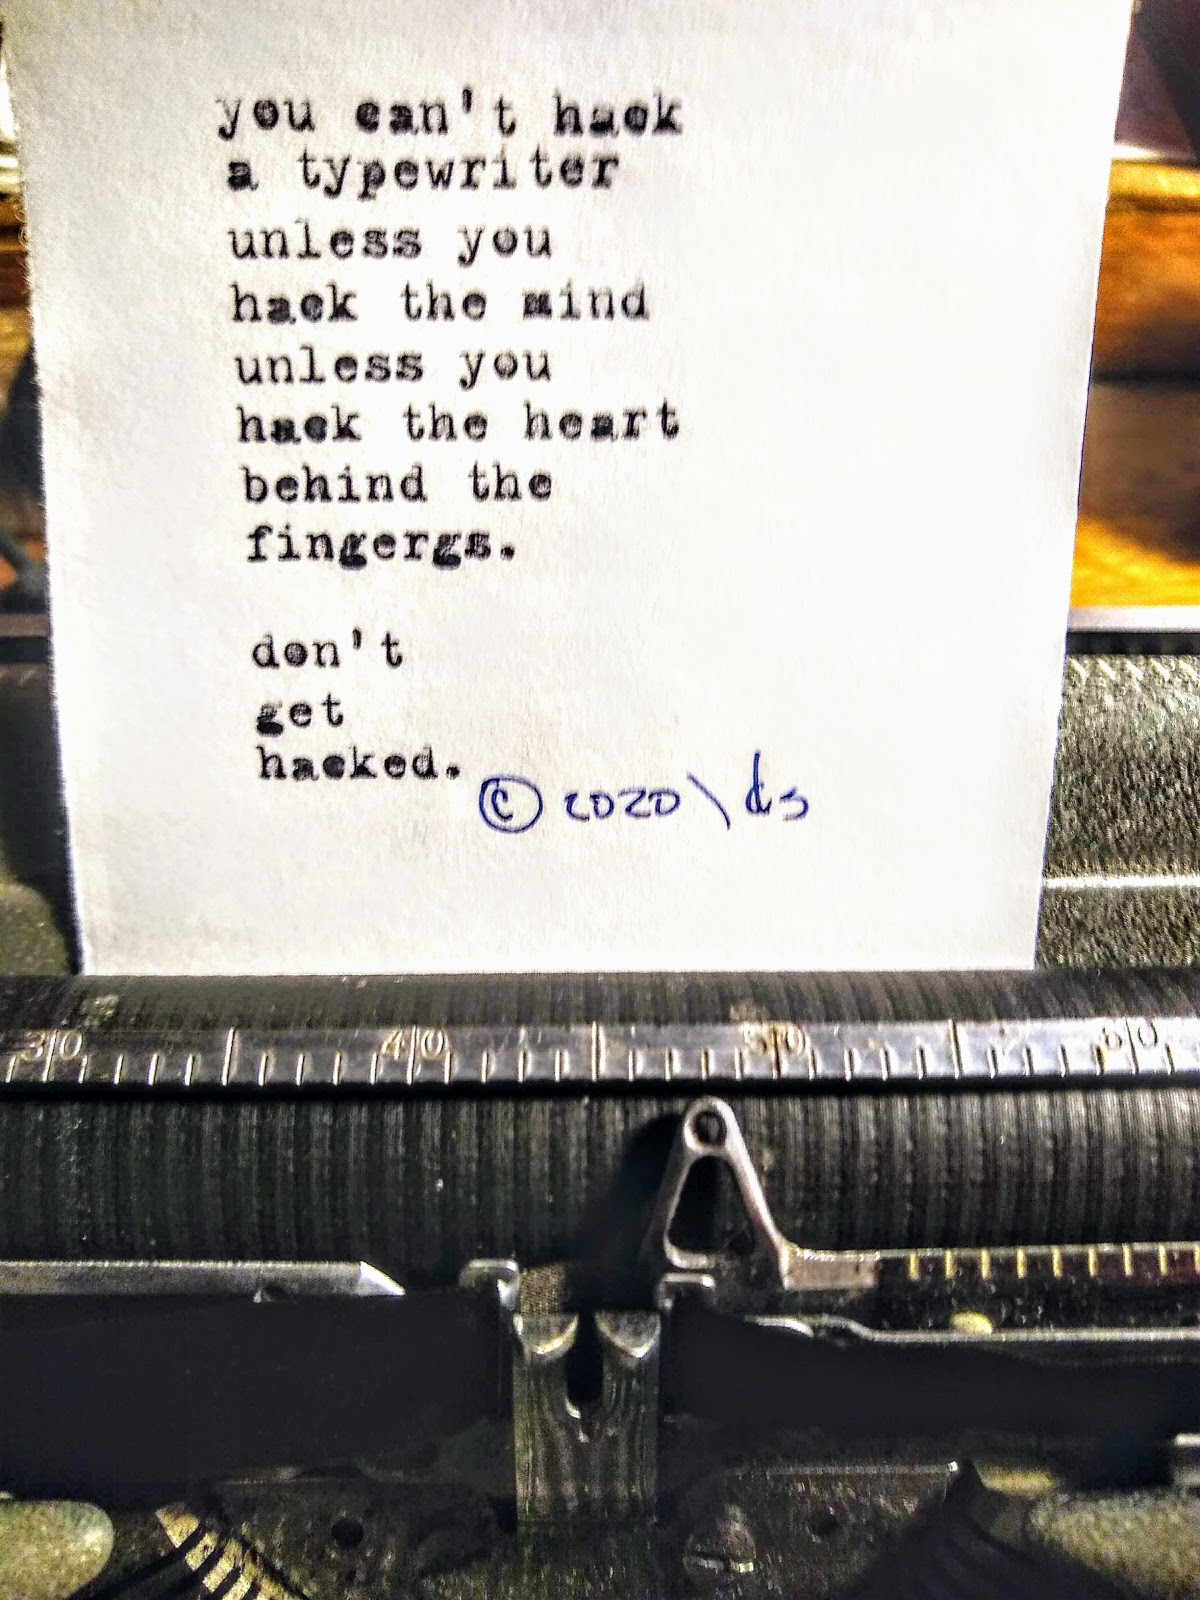 you can't hack
a typewriter
unless you
hack the mind
unless you
hack the heart
behind the
fingergs.
don't
get
hacked.
© 2020 \ ds
30 40 50 60